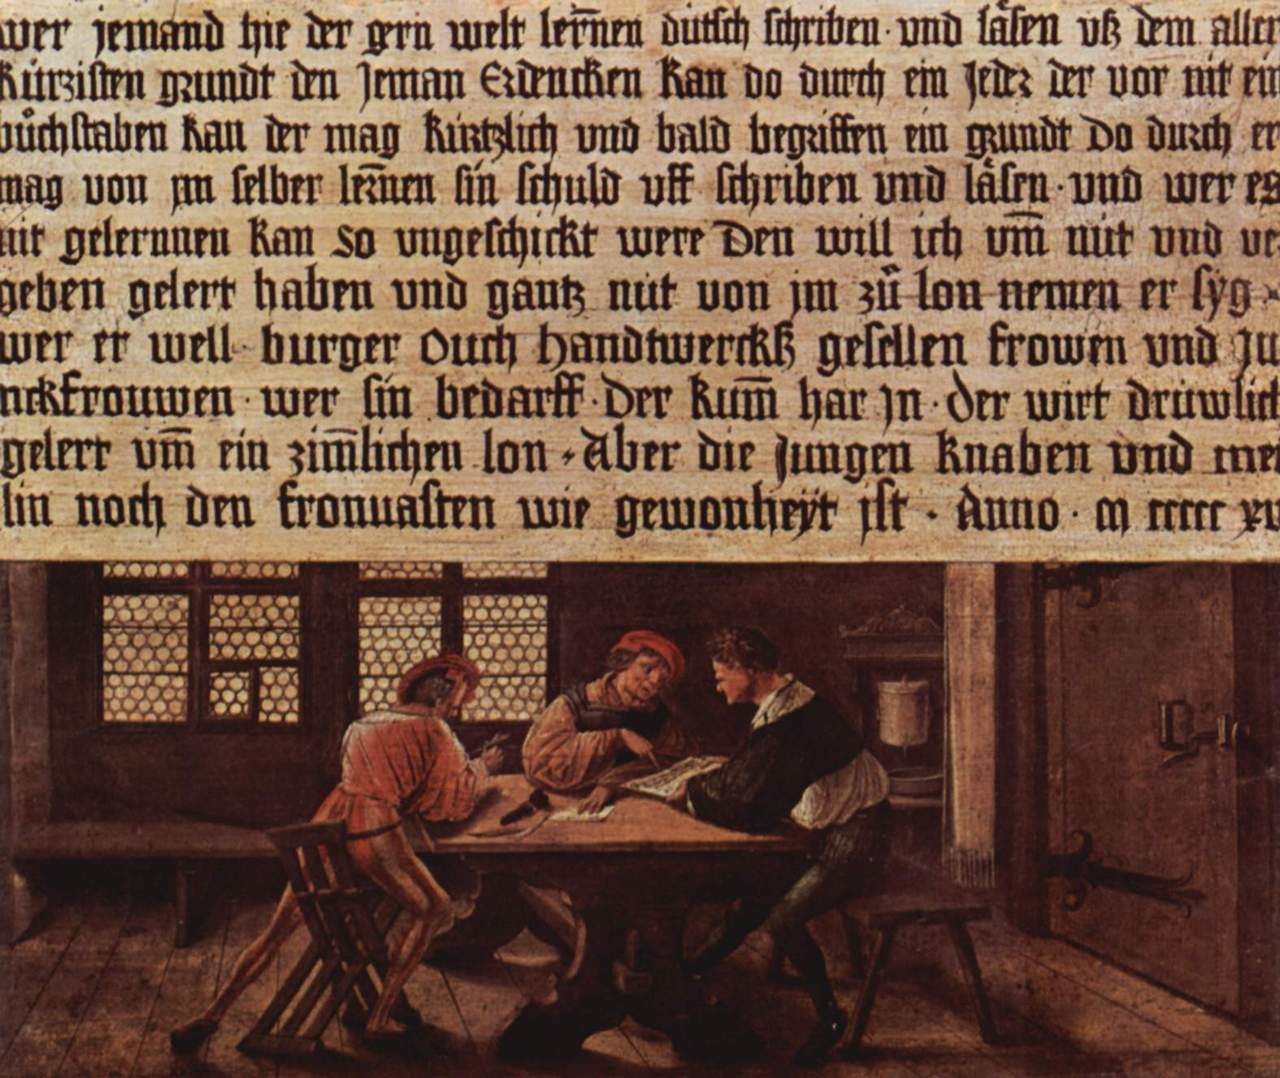 wer jemand hie der gern welt ler̄nen dütsch schriben · vnd läsen vß dem aller
kürzisten grundt den Jeman Erdencken kan do durch ein Jeder der vor nit ein
bůchstaben kan der mag kürtzlich vnd bald begriffen ein grundt do durch er
mag von jm selber ler̄nen sin schuld vff schriben vnd läsen · vnd wer es
nit gelernnen kan so vngeschickt were Den will ich vm̄ nüt vnd ve
geben gelert haben vnd gantz nüt von jm zů lon nemen er syg
wer er well · burger ouch handtwerckß gesellen frowen vnd Ju
nckfrouwen · wer sin bedarff · Der kum̄ har jn · der wirt drüwlich
gelert vm̄ ein zim̄lichen lon · Aber die Jungen knaben vnd met
lin noch den fronuasten wie gewonheÿt jst · Anno · m ccccc xv